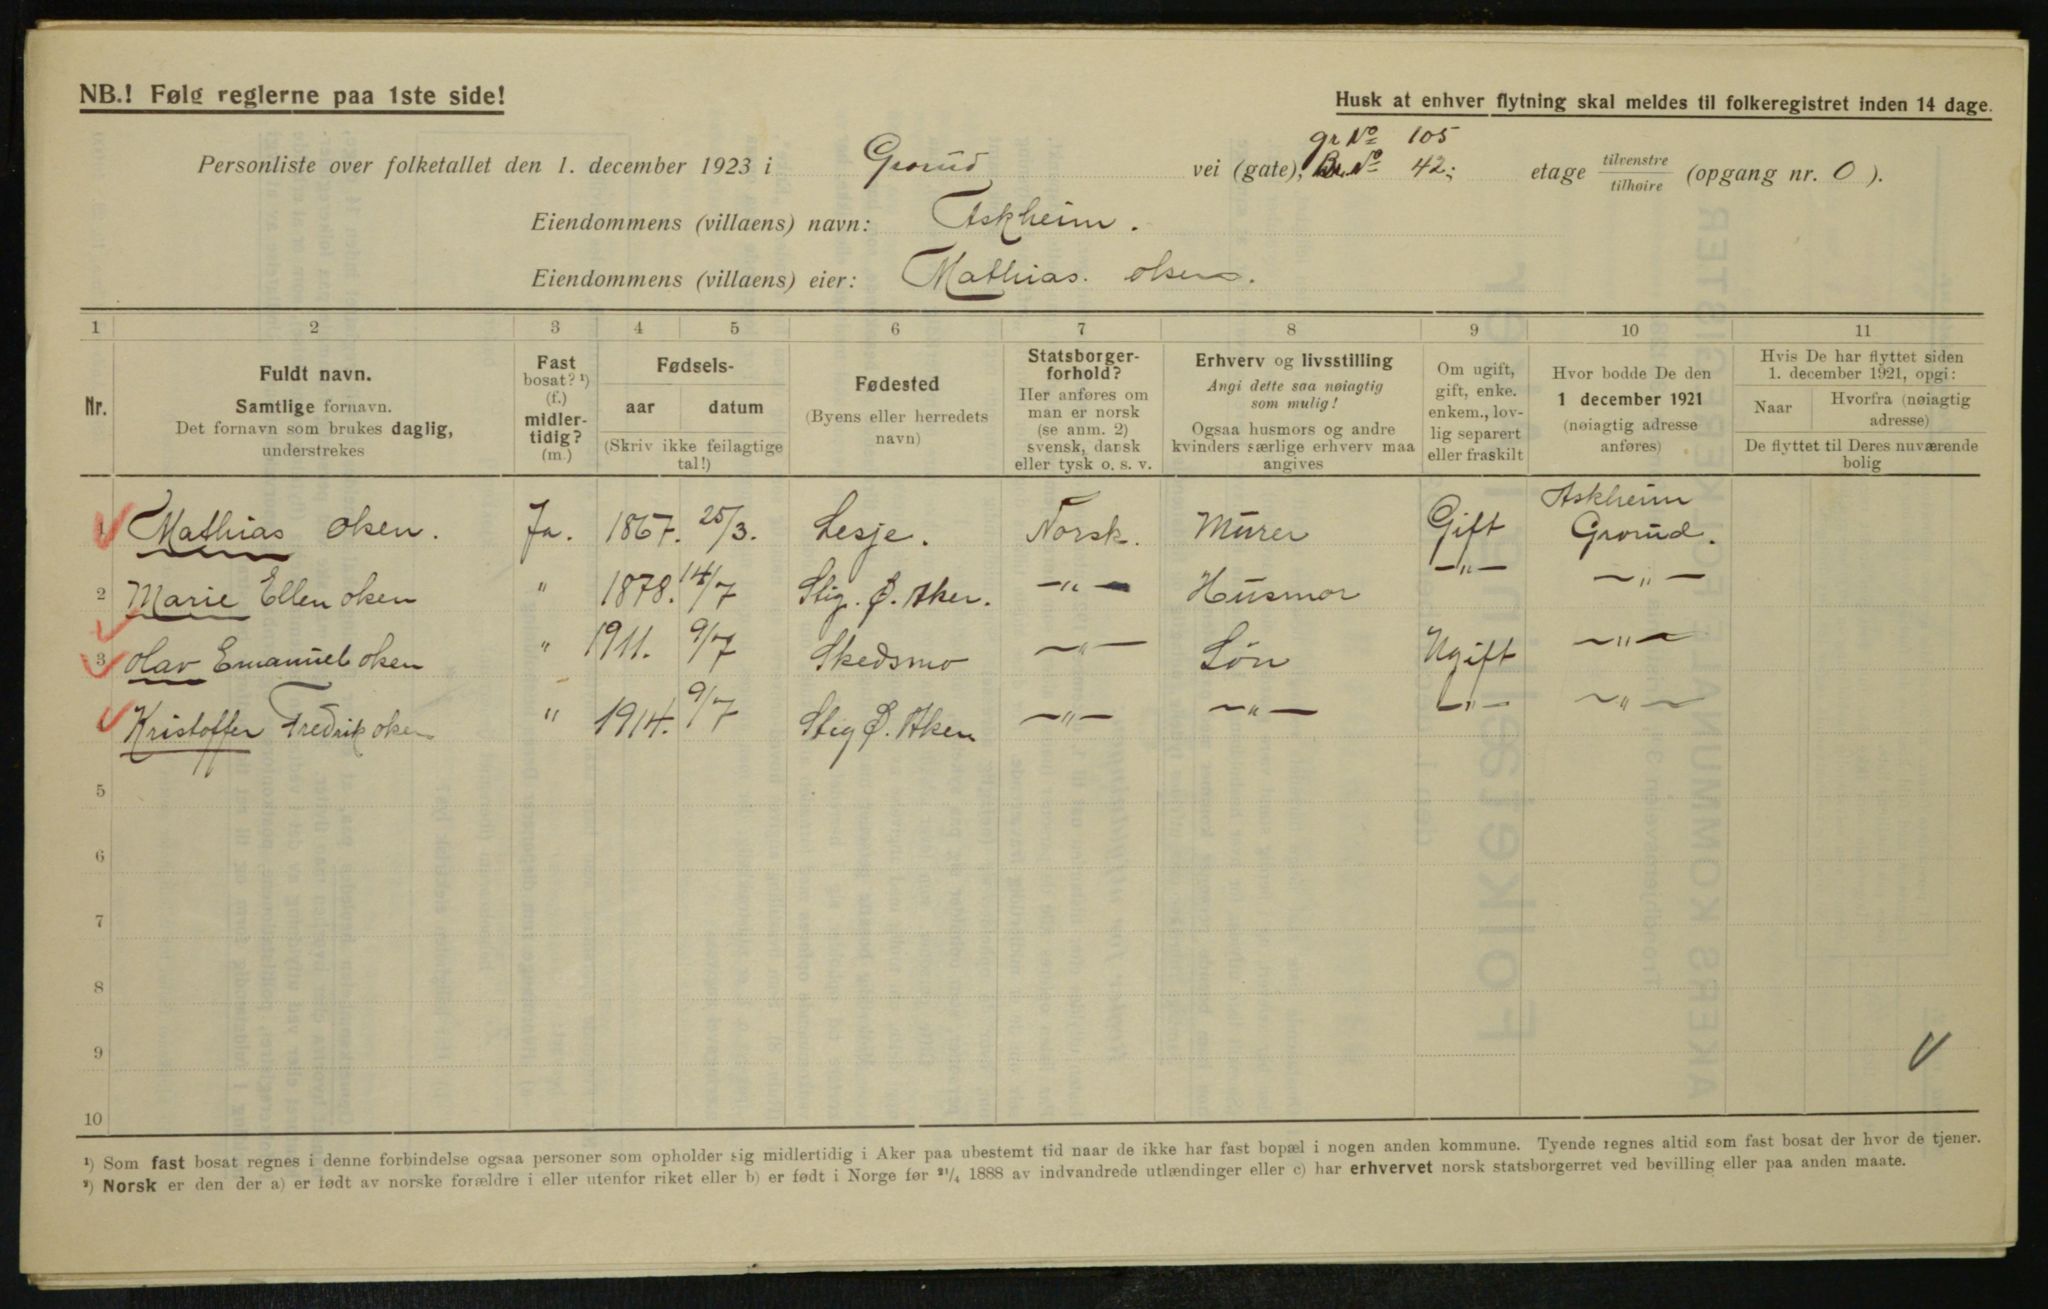 NB.! Følg reglerne paa 1ste side!
Husk at enhver flytning skal meldes til folkeregistret inden 14 dage.
gr Nº 105
Personliste over folketallet den 1. december 1923 i Grorud vei (gate), Br. Nº 42; etage tilvenstre / tilhøire (opgang nr. 0 ).
Eiendommens (villaens) navn: Askheim.
Eiendommens (villaens) eier: Mathias Olsen.
1 2 3 4 5 6 7 8 9 10 11
Nr.
Fuldt navn.
Samtlige fornavn.
Det fornavn som brukes daglig,
understrekes
Fast
bosat? ¹)
(f.)
midler-
tidig?
(m.)
Fødsels-
aar datum
(Skriv ikke feilagtige
tal!)
Fødested
(Byens eller herredets
navn)
Statsborger-
forhold?
Her anføres om
man er norsk
(se anm. 2)
svensk, dansk
eller tysk o. s. v.
Erhverv og livsstilling
Angi dette saa nøiagtig
som mulig!
Ogsaa husmors og andre
kvinders særlige erhverv maa
angives
Om ugift,
gift, enke.
enkem., lov-
lig separert
eller fraskilt
Hvor bodde De den
1 december 1921
(nøiagtig adresse
anføres)
Hvis De har flyttet siden
1. december 1921, opgi:
Naar
Hvorfra (nøiagtig
adresse)
De flyttet til Deres nuværende
bolig
1 Mathias Olsen. Ja. 1867. 25/3. Lesje. Norsk. Murer Gift Askheim Grorud.
2 Marie Ellen Olsen " 1878. 14/7 Stig. Ø. Aker. —"— Husmor —"— —"—
3 Olav Emanuel Olsen " 1911. 9/7 Skedsmo —"— Søn Ugift —"—
4 Kristoffer Fredrik Olsen " 1914. 9/7 Stig Ø. Aker —"— —"— —"— —"—
5
6
7
8
9
10
¹) Som fast bosat regnes i denne forbindelse ogsaa personer som opholder sig midlertidig i Aker paa ubestemt tid naar de ikke har fast bopæl i nogen anden kommune. Tyende regnes altid som fast bosat der hvor de tjener.
²) Norsk er den der a) er født av norske forældre i eller utenfor riket eller b) er født i Norge før ²¹/₄ 1888 av indvandrede utlændinger eller c) har erhvervet norsk statsborgerret ved bevilling eller paa anden maate.